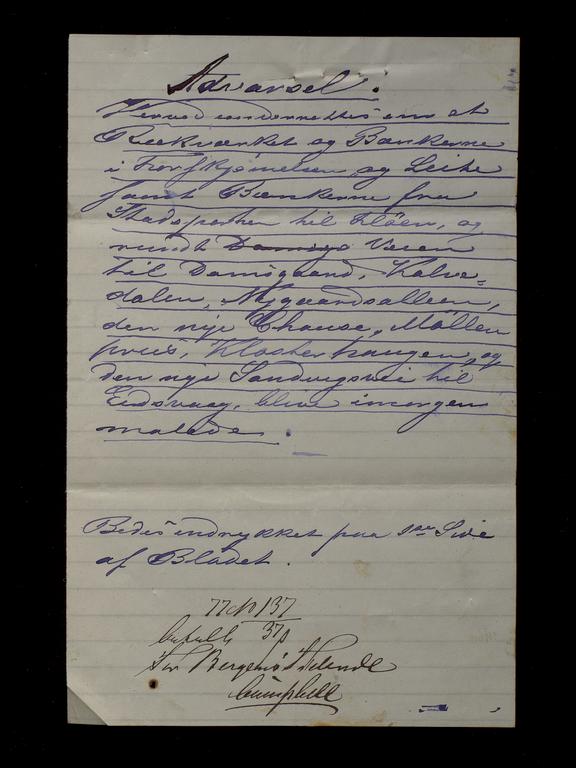 Advarsel.
Herved underrettes om at
Rækværket og Bænkerne
i Forskjønnelsen og Leite
samt Bænkerne fra
Stadsporten til Fløen, og
rundt Damsgs Veien
til Damsgaard, Kalve-
dalen, Nygaardsalleen,
den nye Chause, Møllen
priis, Klosterhaugen, og
den nye Sandvigsvei til
Eidsvaag, blive imorgen
malede.
Bedes indrykket paa 1ste Side
af Bladet.
77 137
370
for Bergens Tidende
Campbell